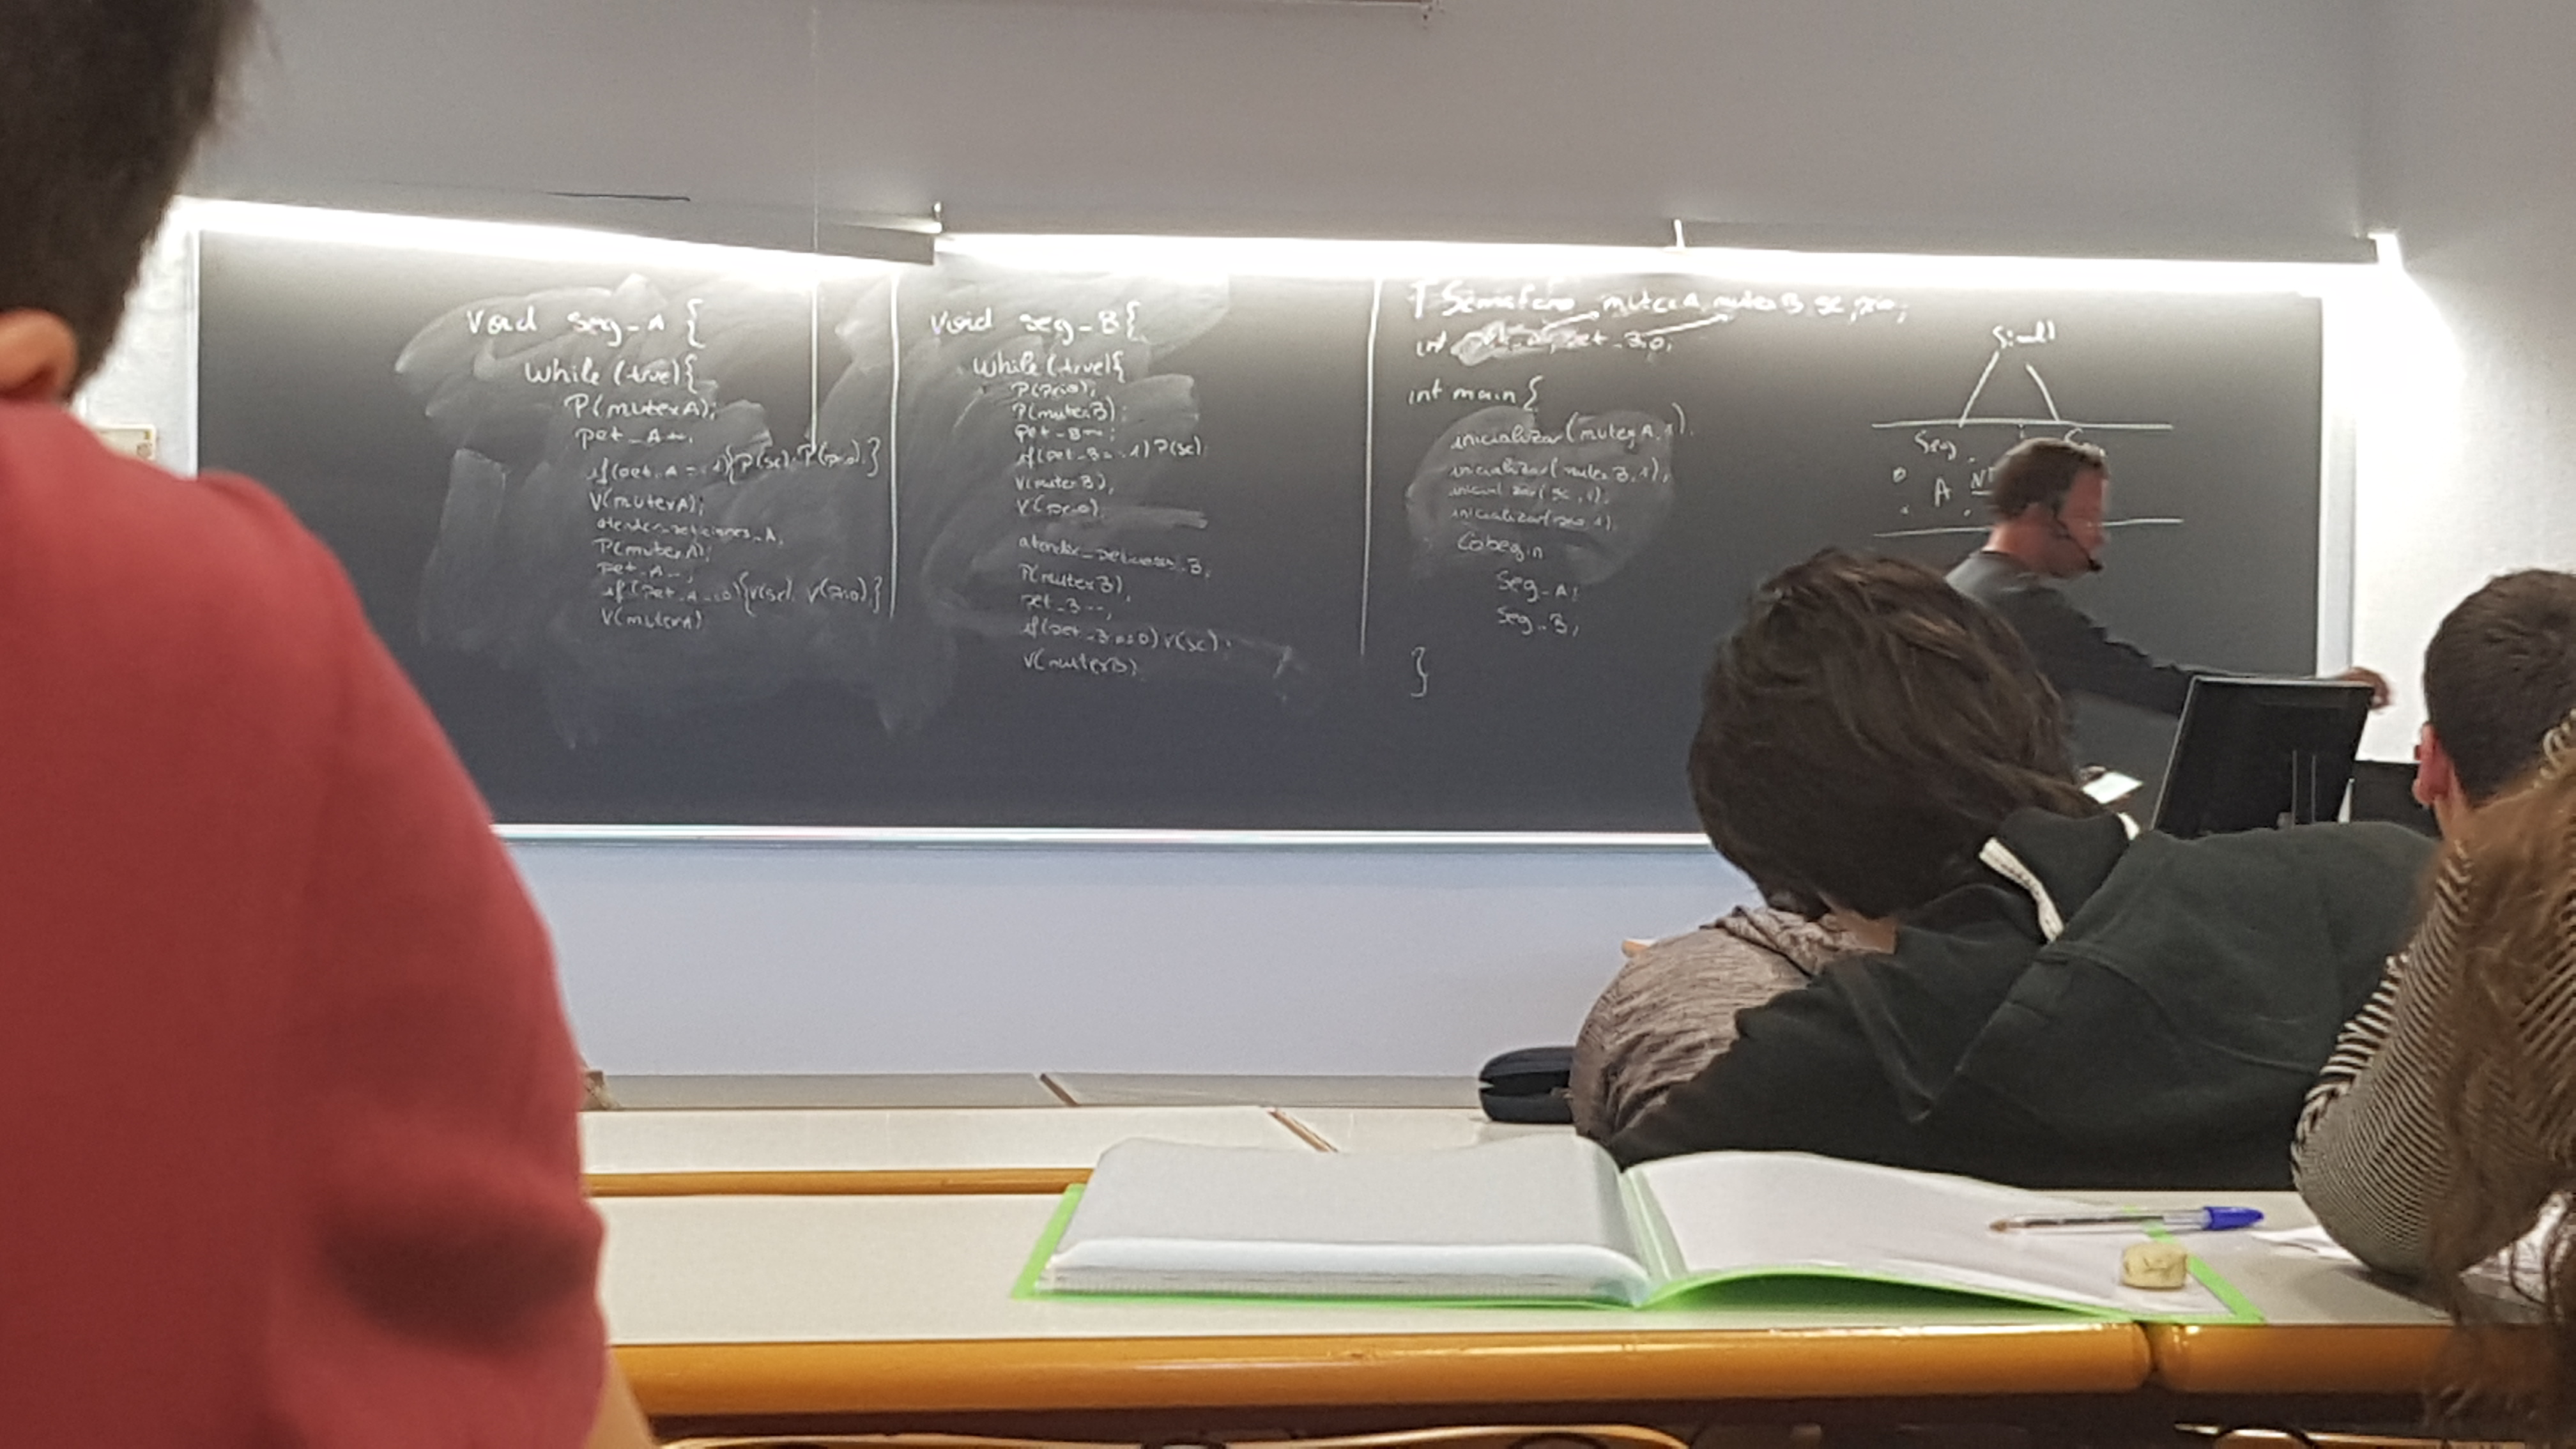 Void seg_A {
While (true){
P(mutexA);
pet_A++;
if(pet_A == 1){P(sc); P(prio);}
V(mutexA);
atender_peticiones_A;
P(mutexA);
pet_A--;
if(pet_A==0){V(sc); V(prio);}
V(mutexA)
Void seg_B{
While (true){
P(prio);
P(mutexB);
pet_B++;
if(pet_B==1) P(sc);
V(mutexB);
V(prio)
atender_peticiones_B;
P(mutexB);
pet_B--;
if(pet_B==0) V(sc);
V(mutexB)
TSemaforo mutexA, mutexB, sc, prio;
int
int main {
inicializar(mutexA,1);
inicializar(mutexB,1);
inicializar(sc,1);
inicializar(prio,1);
Cobegin
Seg_A;
Seg_B;
}
Seg
A